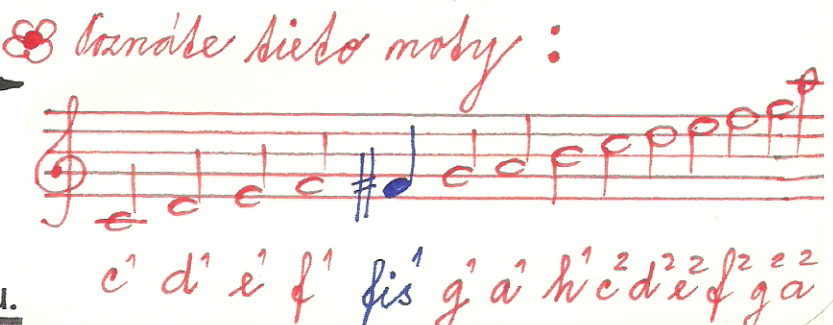 Poznáte tieto noty :
c¹ d¹ e¹ f¹ fis¹ g¹ a¹ h¹ c² d² e² f² g² a²
u.